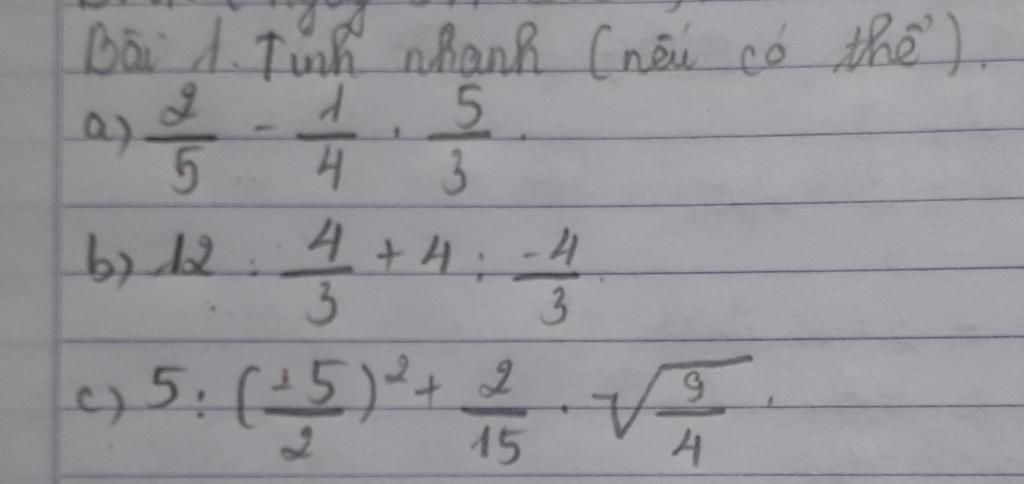 Bài 1. Tính nhanh (nếu có thể).
a) 2/5 - 1/4 . 5/3.
b) 12 : 4/3 + 4 : -4/3.
c) 5 : (-5/2)² + 2/15 . √(9/4).